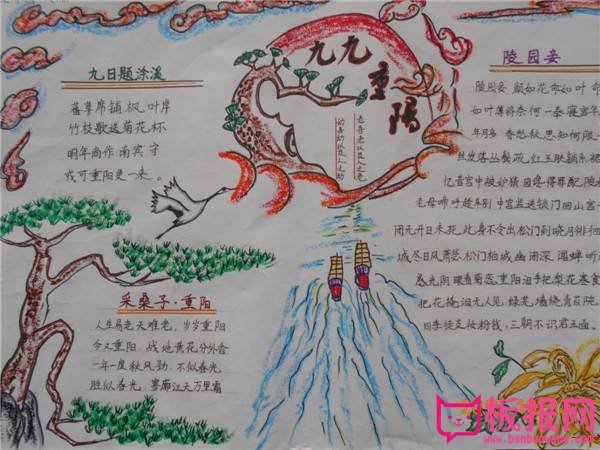 九日题涂溪
蕃草席铺枫叶岸
竹枝歌送菊花杯
明年尚作南宾守
或可重阳更一来。
采桑子·重阳
人生易老天难老，岁岁重阳
今又重阳，战地黄花分外香
一年一度秋风劲，不似春光。
胜似春光，寥廓江天万里霜
九九重阳
老吾老以及人之老
陵园妾
陵园妾 颜如花命如叶 命
如叶薄将奈何一奉寝宫年
年月多 春愁秋思知何限
丝发落丛鬓疏 红玉肤销系裙
忆昔宫中被妒猜 因谗得罪配陵
老母啼呼趁车别 中官监送锁门回山宫
闭九开日未死此身不令出松门到晓月徘徊
城尽日风萧瑟松门柏城幽闭深 闻蝉听
感光阴 眼看菊蕊重阳泪手把梨花寒食
把花掩泪无人见 绿芜墙绕青苔院
四季徒支妆粉钱，三朝不识君王面。
板报网
www.banbaowang.com